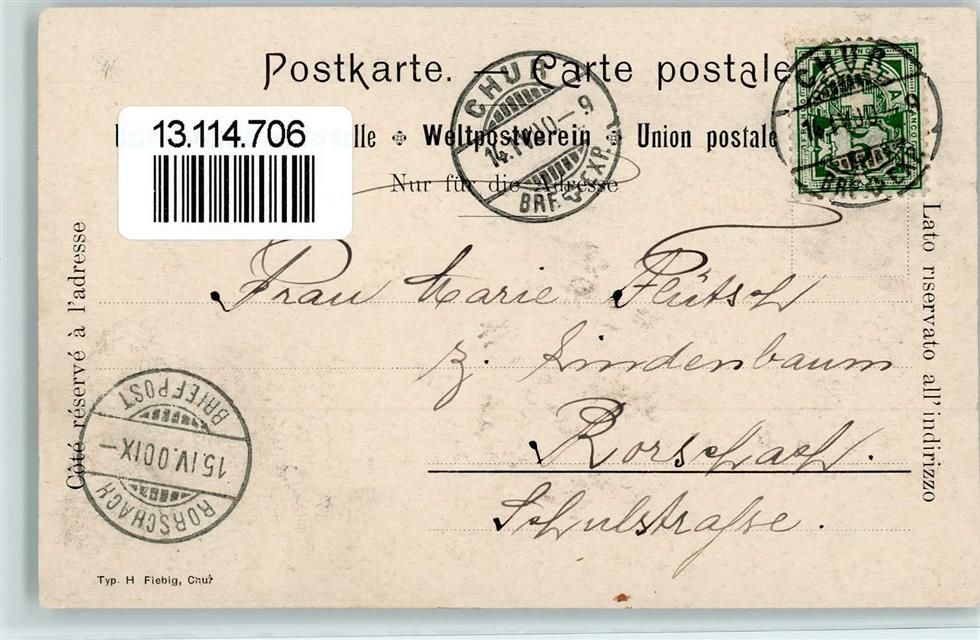 Postkarte. — Carte postale
13.114.706
Weltpostverein Union postale
Nur für die Adresse
CHUR
14.IV.00.-9
BRF.EXP.
CHUR
Côté réservé à l'adresse
Lato riservato all'indirizzo
Frau Marie Flütsch
z. Lindenbaum
Rorschach.
Schulstraße.
BRIEFPOST
15.IV.00.IX-
RORSCHACH
Typ. H Fiebig, Chur